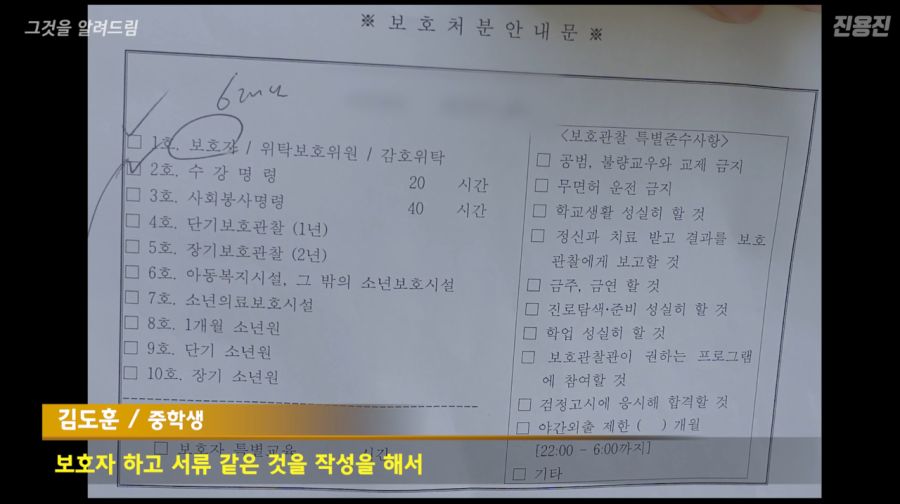 그것을 알려드림
진용진
※ 보호처분안내문 ※
6개월
□ 1호. 보호자 / 위탁보호위원 / 감호위탁
☑ 2호. 수 강 명 령 20 시간
□ 3호. 사회봉사명령 40 시간
□ 4호. 단기보호관찰 (1년)
□ 5호. 장기보호관찰 (2년)
□ 6호. 아동복지시설, 그 밖의 소년보호시설
□ 7호. 소년의료보호시설
□ 8호. 1개월 소년원
□ 9호. 단기 소년원
□ 10호. 장기 소년원
□ 보호자 특별교육 시간
<보호관찰 특별준수사항>
□ 공범, 불량교우와 교제 금지
□ 무면허 운전 금지
□ 학교생활 성실히 할 것
□ 정신과 치료 받고 결과를 보호
관찰에게 보고할 것
□ 금주, 금연 할 것
□ 진로탐색·준비 성실히 할 것
□ 학업 성실히 할 것
□ 보호관찰관이 권하는 프로그램
에 참여할 것
□ 검정고시에 응시해 합격할 것
□ 야간외출 제한 ( ) 개월
[22:00 - 6:00까지]
□ 기타
김도훈 / 중학생
보호자 하고 서류 같은 것을 작성을 해서